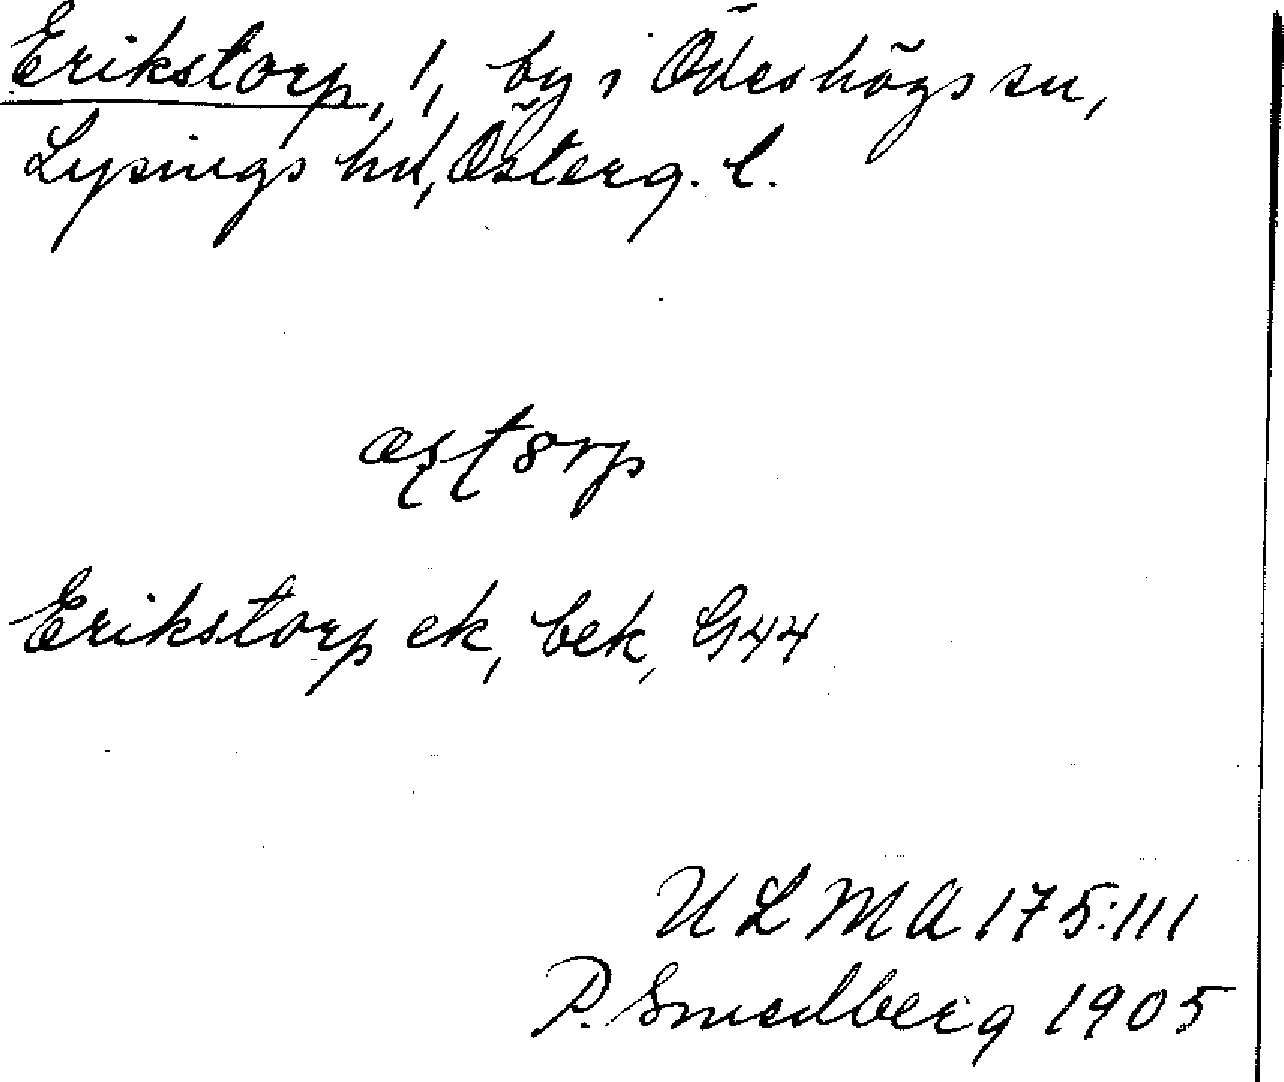 Erikstorp, 1, by i Ödeshögs sn,
Lysings hd, Österg. l.
Erikstorp ek, bek, G44
ULMA 175:111
P. Smedberg 1905